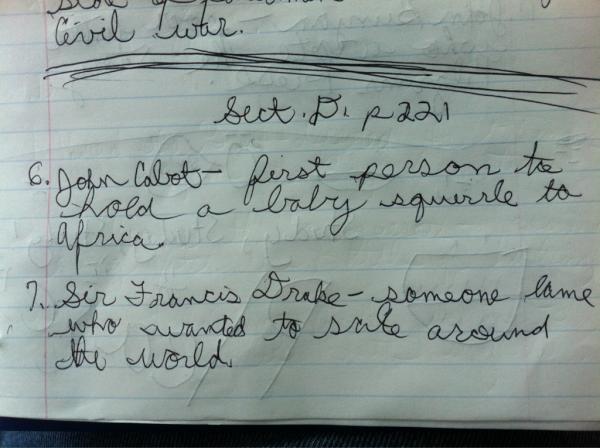 Civil war.
Sect. D. p 221
6. John Cabot - first person to
hold a baby squirrle to
Africa.
7. Sir Francis Drake - someone lame
who wanted to sale around
the world.